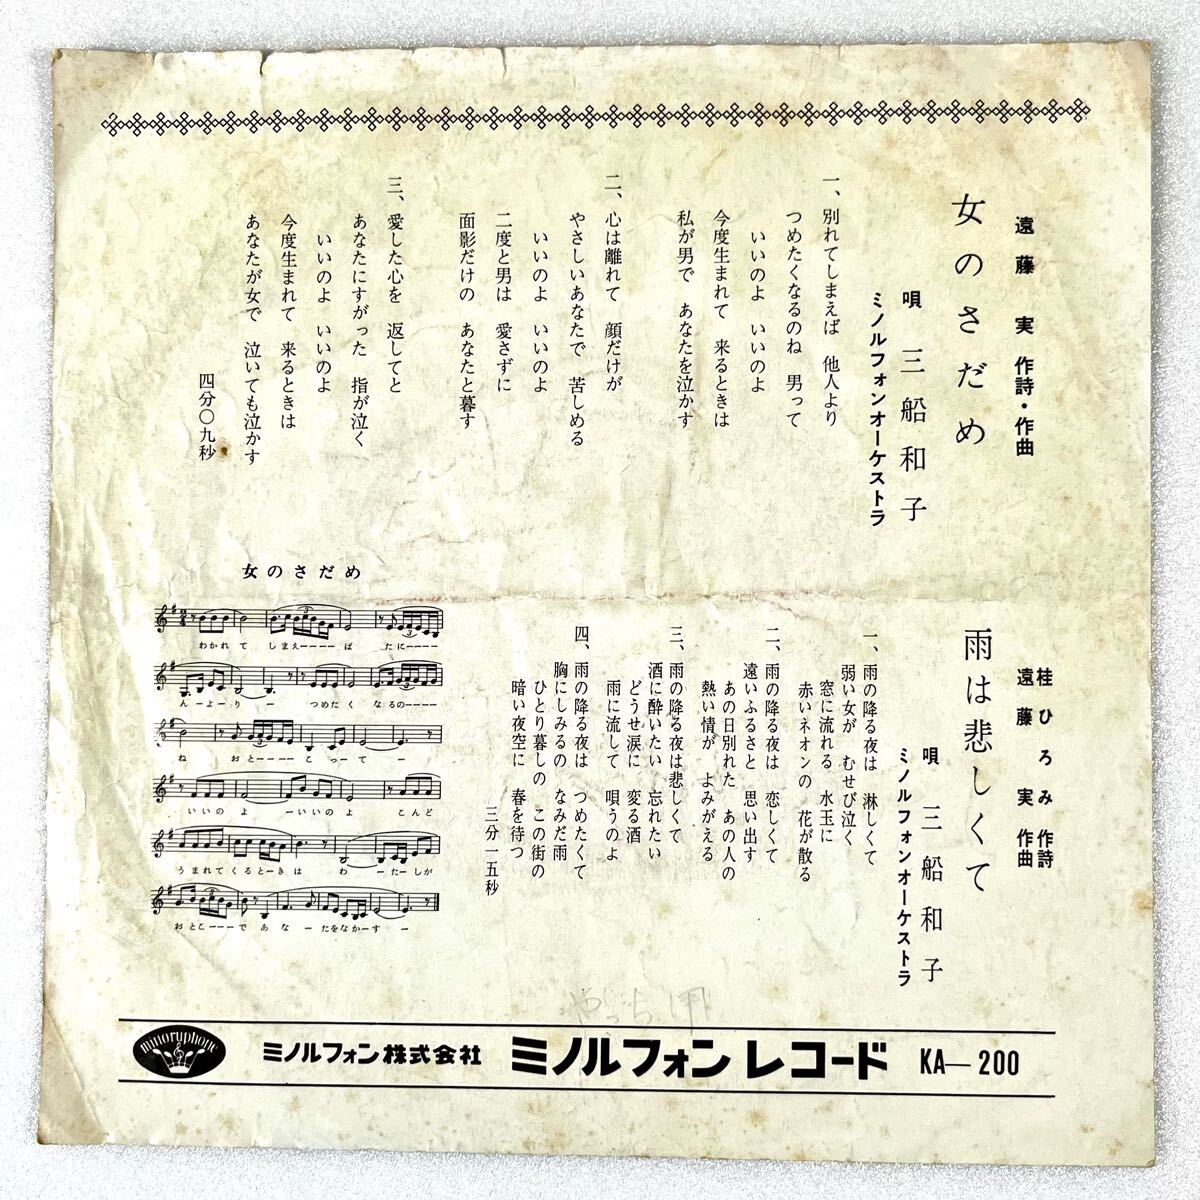 遠藤 実 作詩・作曲
女のさだめ
唄 三船和子
ミノルフォンオーケストラ
一、別れてしまえば 他人より
つめたくなるのね 男って
いいのよ いいのよ
今度生まれて 来るときは
私が男で あなたを泣かす
二、心は離れて 顔だけが
やさしいあなたで 苦しめる
いいのよ いいのよ
二度と男は 愛さずに
面影だけの あなたと暮す
三、愛した心を 返してと
あなたにすがった 指が泣く
いいのよ いいのよ
今度生まれて 来るときは
あなたが女で 泣いても泣かす
四分〇九秒
桂ひろみ 作詩
遠藤 実 作曲
雨は悲しくて
唄 三船和子
ミノルフォンオーケストラ
一、雨の降る夜は 淋しくて
弱い女が むせび泣く
窓に流れる 水玉に
赤いネオンの 花が散る
二、雨の降る夜は 恋しくて
遠いふるさと 思い出す
あの日別れた あの人の
熱い情が よみがえる
三、雨の降る夜は悲しくて
酒に酔いたい 忘れたい
どうせ涙に 変る酒
雨に流して 唄うのよ
四、雨の降る夜は つめたくて
胸にしみるの なみだ雨
ひとり暮しの この街の
暗い夜空に 春を待つ
三分一五秒
女のさだめ
わかれて しまえ────ば たに────
ん─よ─り─ つめたく なるの───
ね おと────こって─
いいのよ ─いいのよ こんど
うまれてくると─きは わ─た─しが
おとこ───で あな ─たをなか─す─
minoruphone
ミノルフォン株式会社 ミノルフォンレコード KA—200